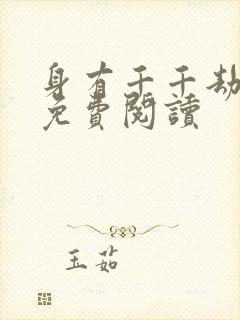 身有千千劫
免費閱讀
玉茹